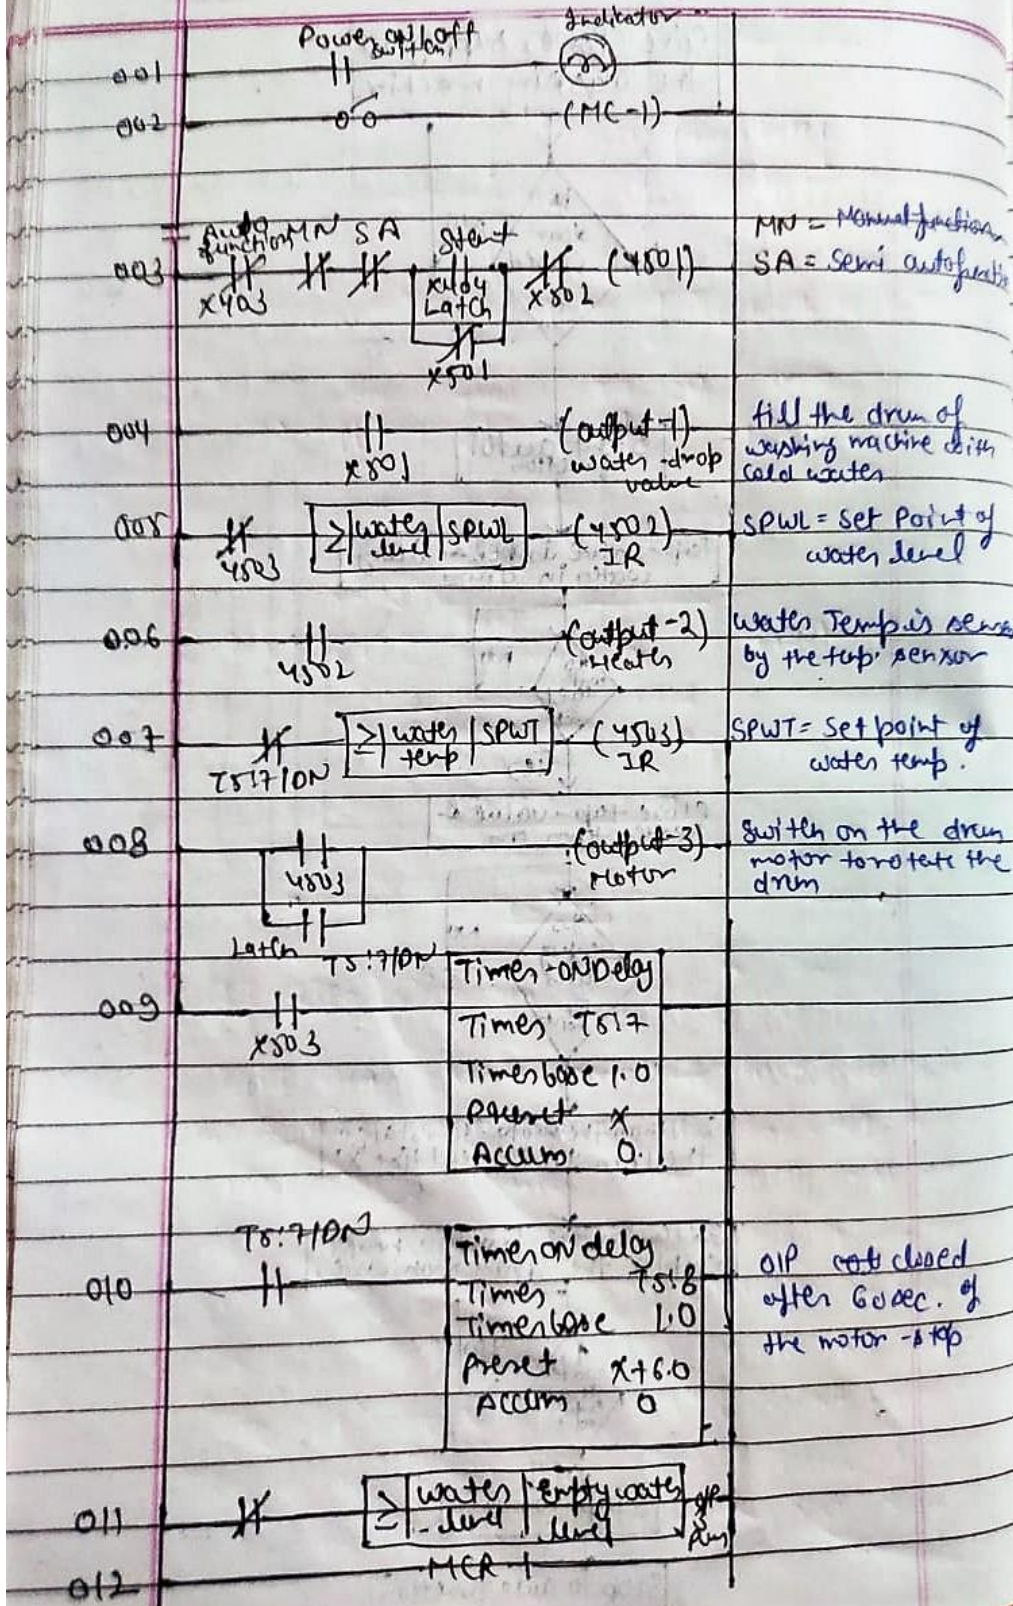 Power on/off switch
Indicator
001
002 (MC-1)
003 Auto function MN SA Start
X403
Latch
X501
X502
(Y501)
MN = Manual function
SA = Semi auto function
004 X501 (output-1)
water-drop
valve
fill the drum of
washing machine with
cold water
005 Y503 ≥ | water level | SPWL (Y502)
IR
SPWL = Set Point of
water level
006 Y502 (output-2)
Heater
water Temp is sense
by the temp. sensor
007 T5:7/DN ≥ | water temp | SPWT (Y503)
IR
SPWT = Set point of
water temp.
008 Y503 (output-3)
Motor
Latch T5:7/DN
Switch on the drum
motor to rotate the
drum
009 X503
Timer-ON Delay
Timer T5:7
Timer base 1.0
Preset X
Accum 0.
010 T5:7/DN
Timer on delay
Timer T5:8
Timer base 1.0
Preset X+6.0
Accum 0
O/P closed
after 60 sec. of
the motor-stop
011 ≥ | water level | Empty water level
012 MCR